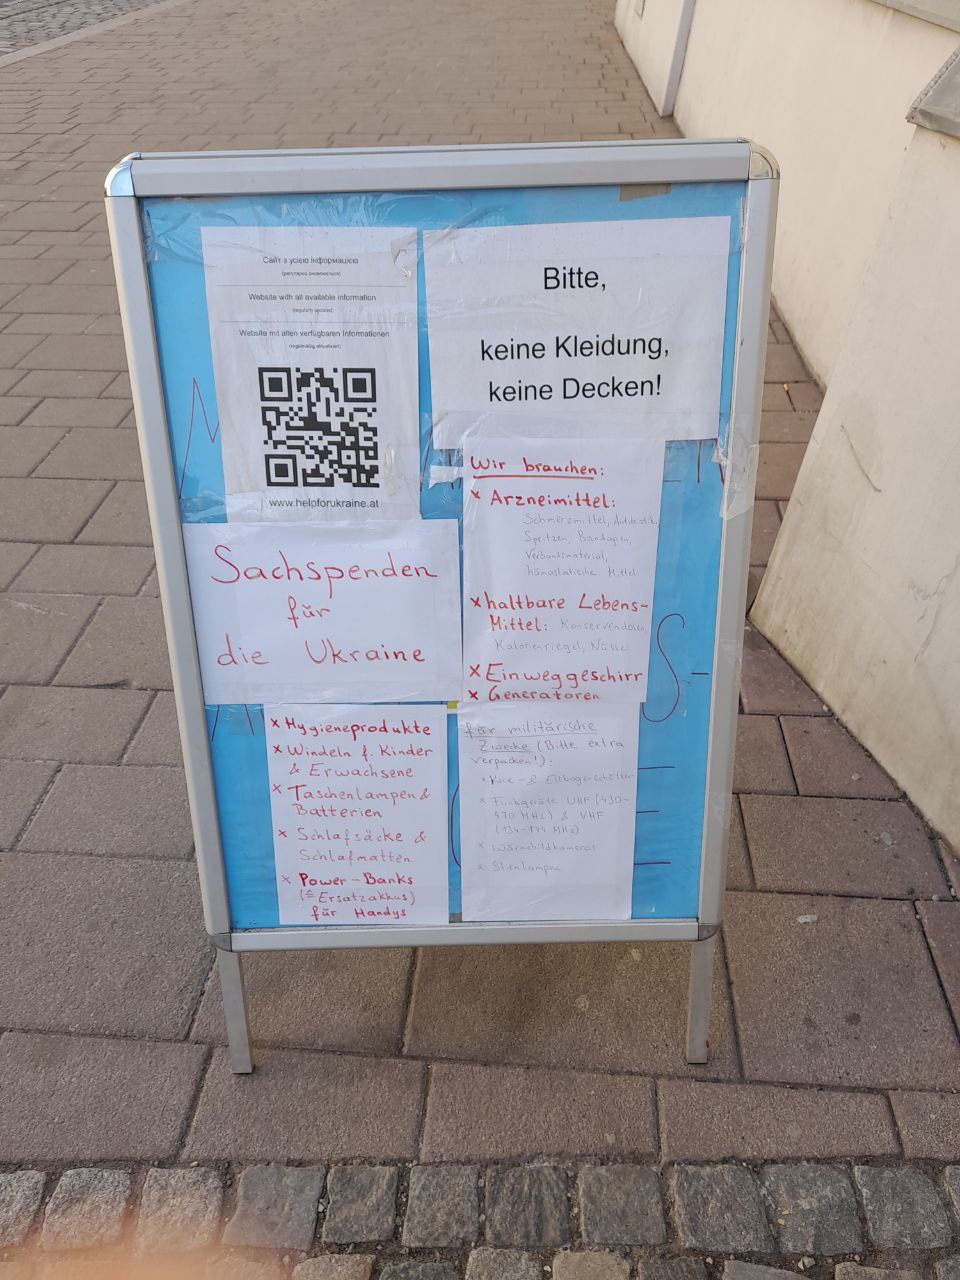 Сайт з усією інформацією
(регулярно оновлюється)
Website with all available information
(regularly updated)
Website mit allen verfügbaren Informationen
(regelmäßig aktualisiert)
www.helpforukraine.at
Bitte,
keine Kleidung,
keine Decken!
Sachspenden
für
die Ukraine
Wir brauchen:
x Arzneimittel:
Schmerzmittel, Antibiotik
Spritzen, Bandagen,
Verbandsmaterial,
hämostatische Mittel
x haltbare Lebens-
Mittel: Konservendosen
Kalorienriegel, Nüsse
x Einweggeschirr
x Generatoren
x Hygieneprodukte
x Windeln f. Kinder
& Erwachsene
x Taschenlampen &
Batterien
x Schlafsäcke &
Schlafmatten
x Power-Banks
(≙ Ersatzakkus)
für Handys
für militärische
Zwecke (Bitte extra
verpacken!):
x Knie- & Ellbogenschützer
x Funkgeräte UHF (430-
470 MHz) & VHF
(134-174 MHz)
x Wärmebildkameras
x Stirnlampen